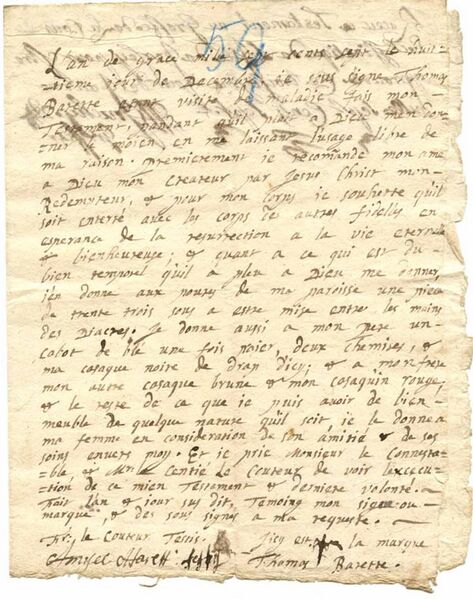 50
L'an de grace mile six cents cent le huit-
-tieme jour de Decembre, je sous signé Thomas
Barette etant visité de maladie fais mon
Testament pendant qu'il plait a Dieu m'en don-
ner le moïen en me laissant l'usage libre de
ma raison. Premierement je recomande mon ame
a Dieu mon Createur par Jesus Christ mon
Redempteur, & pour mon corps je souhette qu'il
soit enterré avec les corps des autres fidelles en
esperance de la resurrection a la vie eternelle
& bienheureuse; & quant a ce qui est du
bien temporel qu'il a pleu a Dieu me donner
j'en donne aux povres de ma paroisse une piece
de trente trois sous a estre mise entre les mains
des Diacres. Je donne aussi a mon pere un
cabot de blé une fois paier, deux chemises, &
ma casaque noire de drap d'icy; & a mon frere
mon autre casaque brune & mon cosaquin rouge,
& le reste de ce que je puis avoir de bien
meuble de quelque nature qu'il soit je le donne a
ma femme en consideration de son amitié & de ses
soins envers moy. Et je prie Monsieur le Connesta-
ble & Mr. le Centie. Le Couteur de voir l'execcu-
tion de ce mien Testament & derniere volonté.
Fait l'an & jour sus dit, Temoing mon signe ou
marque, & des sous signés a ma requeste.
le Couteur Tesm. Icy est la marque
Amisel Thomas Barette.